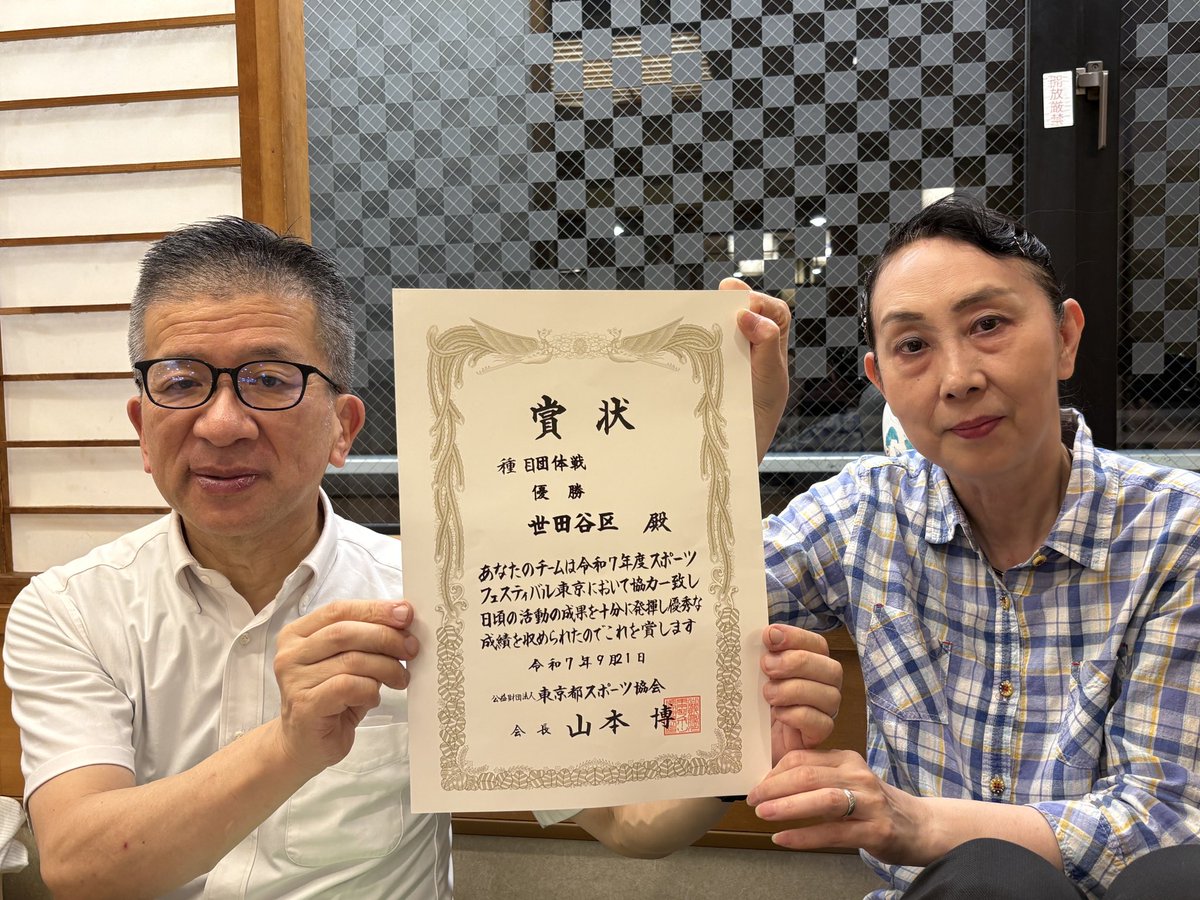 開放厳禁
賞状
種目団体戦
優勝
世田谷区 殿
あなたのチームは令和7年度スポーツ
フェスティバル東京において協力一致し
日頃の活動の成果を十分に発揮し優秀な
成績を収められたのでこれを賞します
令和7年9月21日
公益財団法人 東京都スポーツ協会
会長 山本 博